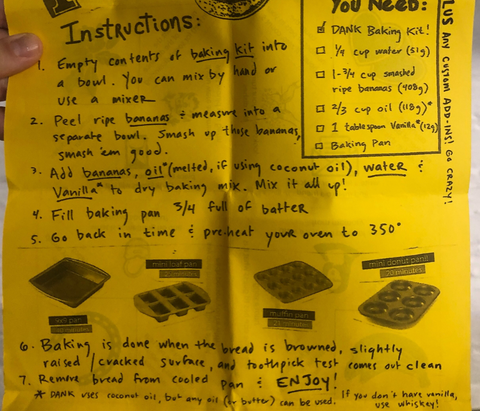 Instructions:
1. Empty contents of baking kit into
a bowl. You can mix by hand or
use a mixer
2. Peel ripe bananas & measure into a
separate bowl. Smash up those bananas,
smash 'em good.
3. Add bananas, oil*(melted, if using coconut oil), water &
Vanilla* to dry baking mix. Mix it all up!
4. Fill baking pan 3/4 full of batter
5. Go back in time & preheat your oven to 350°
YOU NEED:
DANK Baking Kit!
1/4 cup water (51g)
1-3/4 cup smashed
ripe bananas (408g)
2/3 cup oil (118g)*
1 tablespoon Vanilla*(12g)
Baking Pan
PLUS ANY CUSTOM ADD-INS! GO CRAZY!
mini loaf pan
muffin pan
mini donut pan!!
20 minutes
6. Baking is done when the bread is browned, slightly
raised/cracked surface, and toothpick test comes out clean
7. Remove bread from cooled pan & ENJOY!
* DANK uses coconut oil, but any oil (or butter) can be used. If you don't have vanilla,
use whiskey!